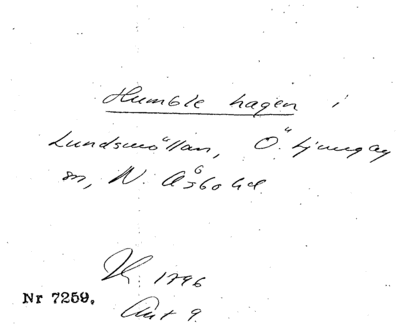 Humle hagen i
Lundsmöllan, Ö. Ljungby
sn, N. Åsbo hd
1796
Nr 7259.
Ant 9.